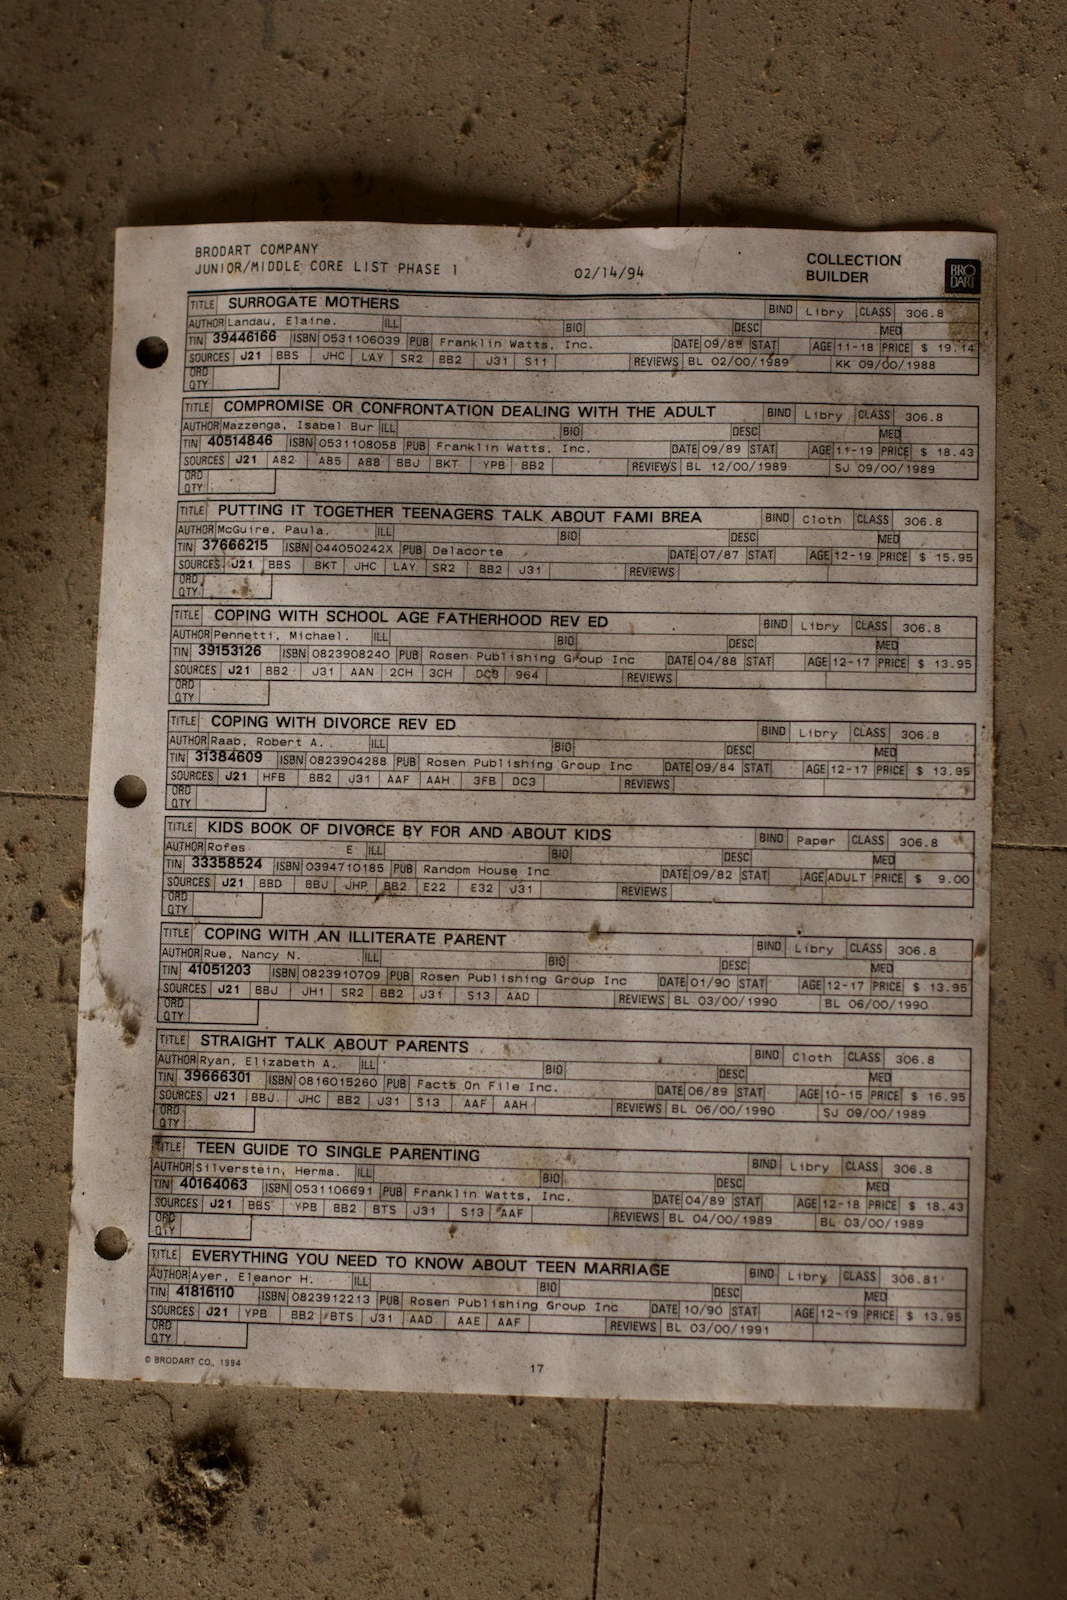 BRODART COMPANY
JUNIOR/MIDDLE CORE LIST PHASE 1 02/14/94 COLLECTION BUILDER BRO DART
TITLE SURROGATE MOTHERS BIND Libry CLASS 306.8
AUTHOR Landau, Elaine. ILL BIO DESC MED
TIN 39446166 ISBN 0531106039 PUB Franklin Watts, Inc. DATE 09/88 STAT AGE 11-18 PRICE $ 19.14
SOURCES J21 BBS JHC LAY SR2 BB2 J31 S11 REVIEWS BL 02/00/1989 KK 09/00/1988
ORD
QTY
TITLE COMPROMISE OR CONFRONTATION DEALING WITH THE ADULT BIND Libry CLASS 306.8
AUTHOR Mazzenga, Isabel Bur ILL BIO DESC MED
TIN 40514846 ISBN 0531108058 PUB Franklin Watts, Inc. DATE 09/89 STAT AGE 11-19 PRICE $ 18.43
SOURCES J21 A82 A85 A88 BBJ BKT YPB BB2 REVIEWS BL 12/00/1989 SJ 09/00/1989
ORD
QTY
TITLE PUTTING IT TOGETHER TEENAGERS TALK ABOUT FAMI BREA BIND Cloth CLASS 306.8
AUTHOR McGuire, Paula. ILL BIO DESC MED
TIN 37666215 ISBN 044050242X PUB Delacorte DATE 07/87 STAT AGE 12-19 PRICE $ 15.95
SOURCES J21 BBS BKT JHC LAY SR2 BB2 J31 REVIEWS
ORD
QTY
TITLE COPING WITH SCHOOL AGE FATHERHOOD REV ED BIND Libry CLASS 306.8
AUTHOR Pennetti, Michael. ILL BIO DESC MED
TIN 39153126 ISBN 0823908240 PUB Rosen Publishing Group Inc DATE 04/88 STAT AGE 12-17 PRICE $ 13.95
SOURCES J21 BB2 J31 AAN 2CH 3CH DC3 964 REVIEWS
ORD
QTY
TITLE COPING WITH DIVORCE REV ED BIND Libry CLASS 306.8
AUTHOR Raab, Robert A. ILL BIO DESC MED
TIN 31384609 ISBN 0823904288 PUB Rosen Publishing Group Inc DATE 09/84 STAT AGE 12-17 PRICE $ 13.95
SOURCES J21 HFB BB2 J31 AAF AAH 3FB DC3 REVIEWS
ORD
QTY
TITLE KIDS BOOK OF DIVORCE BY FOR AND ABOUT KIDS BIND Paper CLASS 306.8
AUTHOR Rofes E ILL BIO DESC MED
TIN 33358524 ISBN 0394710185 PUB Random House Inc DATE 09/82 STAT AGE ADULT PRICE $ 9.00
SOURCES J21 BBD BBJ JHP BB2 E22 E32 J31 REVIEWS
ORD
QTY
TITLE COPING WITH AN ILLITERATE PARENT BIND Libry CLASS 306.8
AUTHOR Rue, Nancy N. ILL BIO DESC MED
TIN 41051203 ISBN 0823910709 PUB Rosen Publishing Group Inc DATE 01/90 STAT AGE 12-17 PRICE $ 13.95
SOURCES J21 BBJ JH1 SR2 BB2 J31 S13 AAD REVIEWS BL 03/00/1990 BL 06/00/1990
ORD
QTY
TITLE STRAIGHT TALK ABOUT PARENTS BIND Cloth CLASS 306.8
AUTHOR Ryan, Elizabeth A. ILL BIO DESC MED
TIN 39666301 ISBN 0816015260 PUB Facts On File Inc. DATE 06/89 STAT AGE 10-15 PRICE $ 16.95
SOURCES J21 BBJ JHC BB2 J31 S13 AAF AAH REVIEWS BL 06/00/1990 SJ 09/00/1989
ORD
QTY
TITLE TEEN GUIDE TO SINGLE PARENTING BIND Libry CLASS 306.8
AUTHOR Silverstein, Herma. ILL BIO DESC MED
TIN 40164063 ISBN 0531106691 PUB Franklin Watts, Inc. DATE 04/89 STAT AGE 12-18 PRICE $ 18.43
SOURCES J21 BBS YPB BB2 BTS J31 S13 AAF REVIEWS BL 04/00/1989 BL 03/00/1989
ORD
QTY
TITLE EVERYTHING YOU NEED TO KNOW ABOUT TEEN MARRIAGE BIND Libry CLASS 306.81
AUTHOR Ayer, Eleanor H. ILL BIO DESC MED
TIN 41816110 ISBN 0823912213 PUB Rosen Publishing Group Inc DATE 10/90 STAT AGE 12-19 PRICE $ 13.95
SOURCES J21 YPB BB2 BTS J31 AAD AAE AAF REVIEWS BL 03/00/1991
ORD
QTY
© BRODART CO., 1994 17